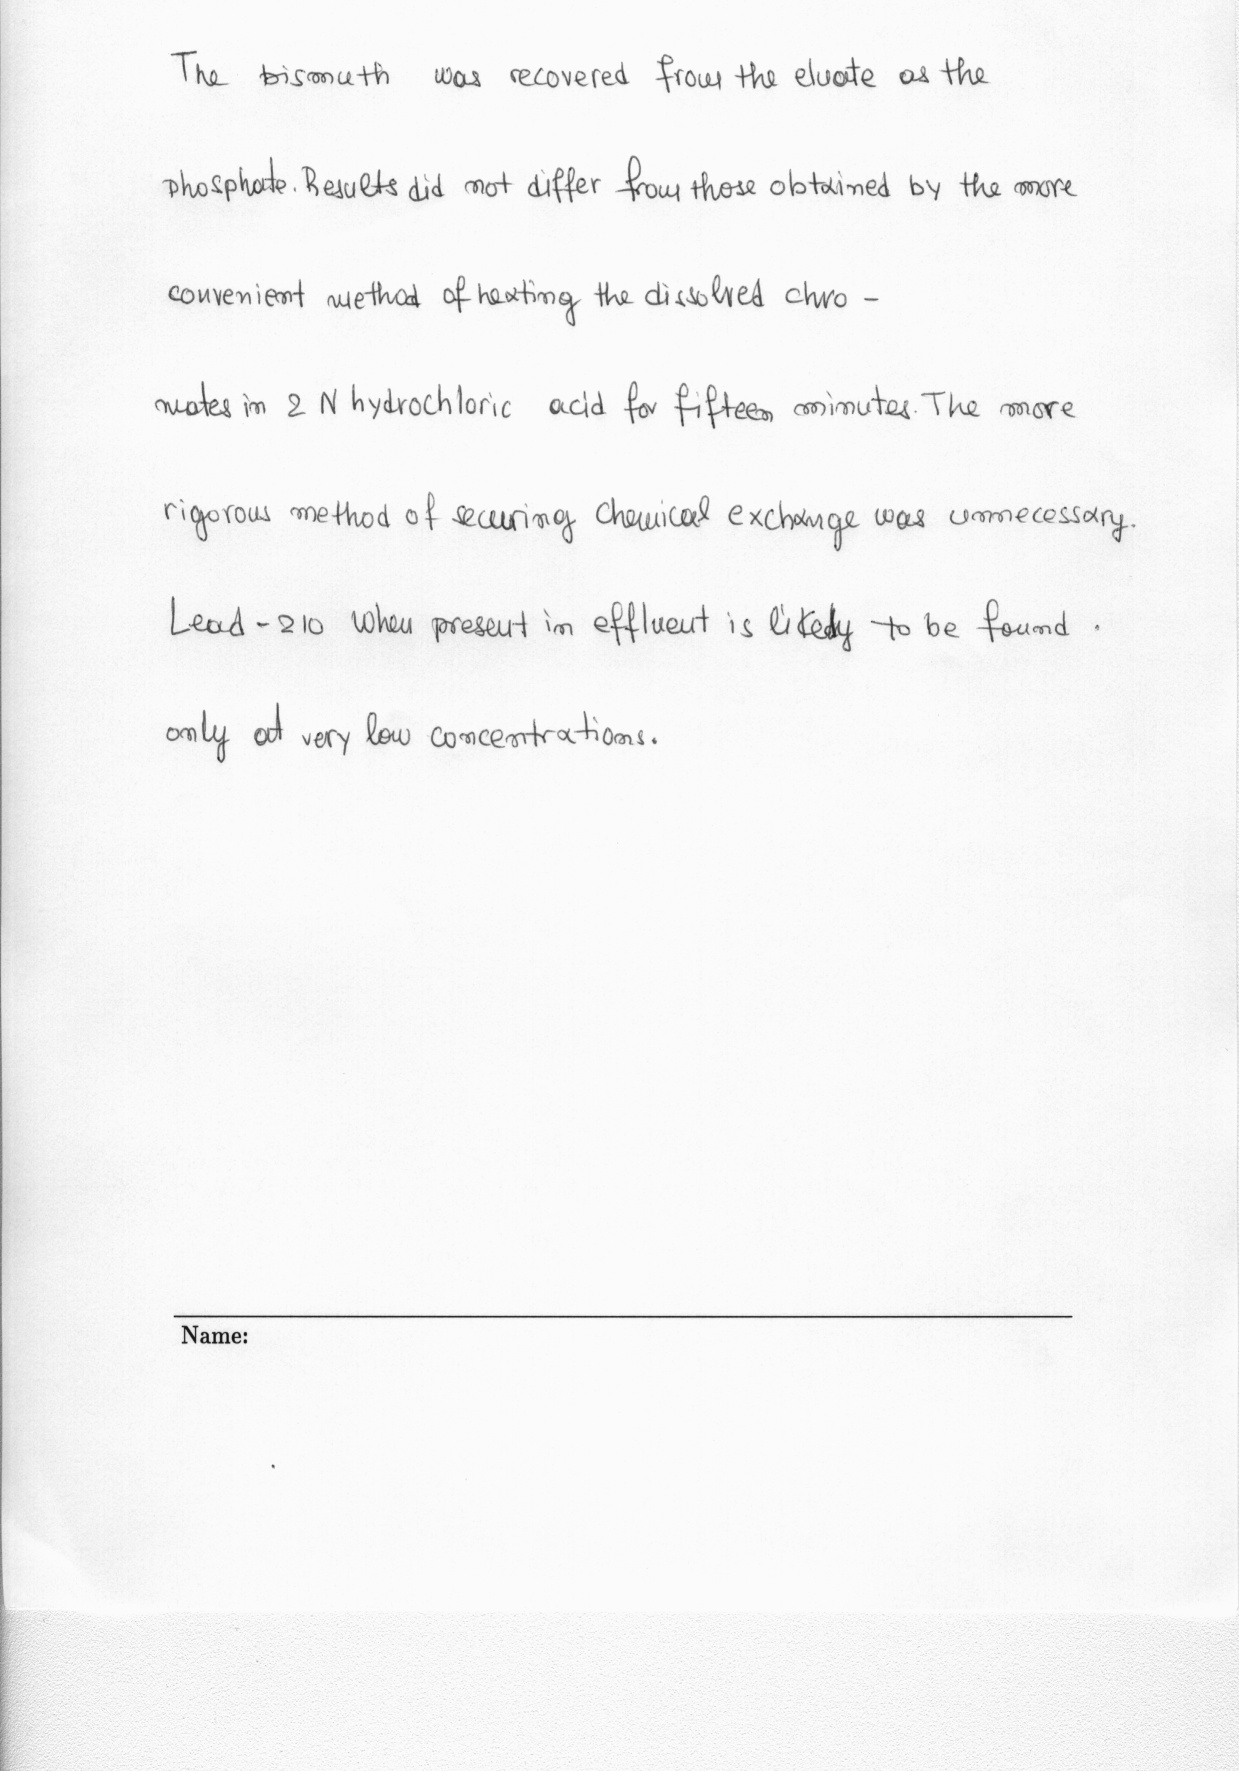 The bismuth was recovered from the eluate as the
phosphate. Results did not differ from those obtained by the more
convenient method of heating the dissolved chro-
mates in 2 N hydrochloric acid for fifteen minutes. The more
rigorous method of securing chemical exchange was unnecessary.
Lead-210 when present in effluent is likely to be found
only at very low concentrations.
Name: